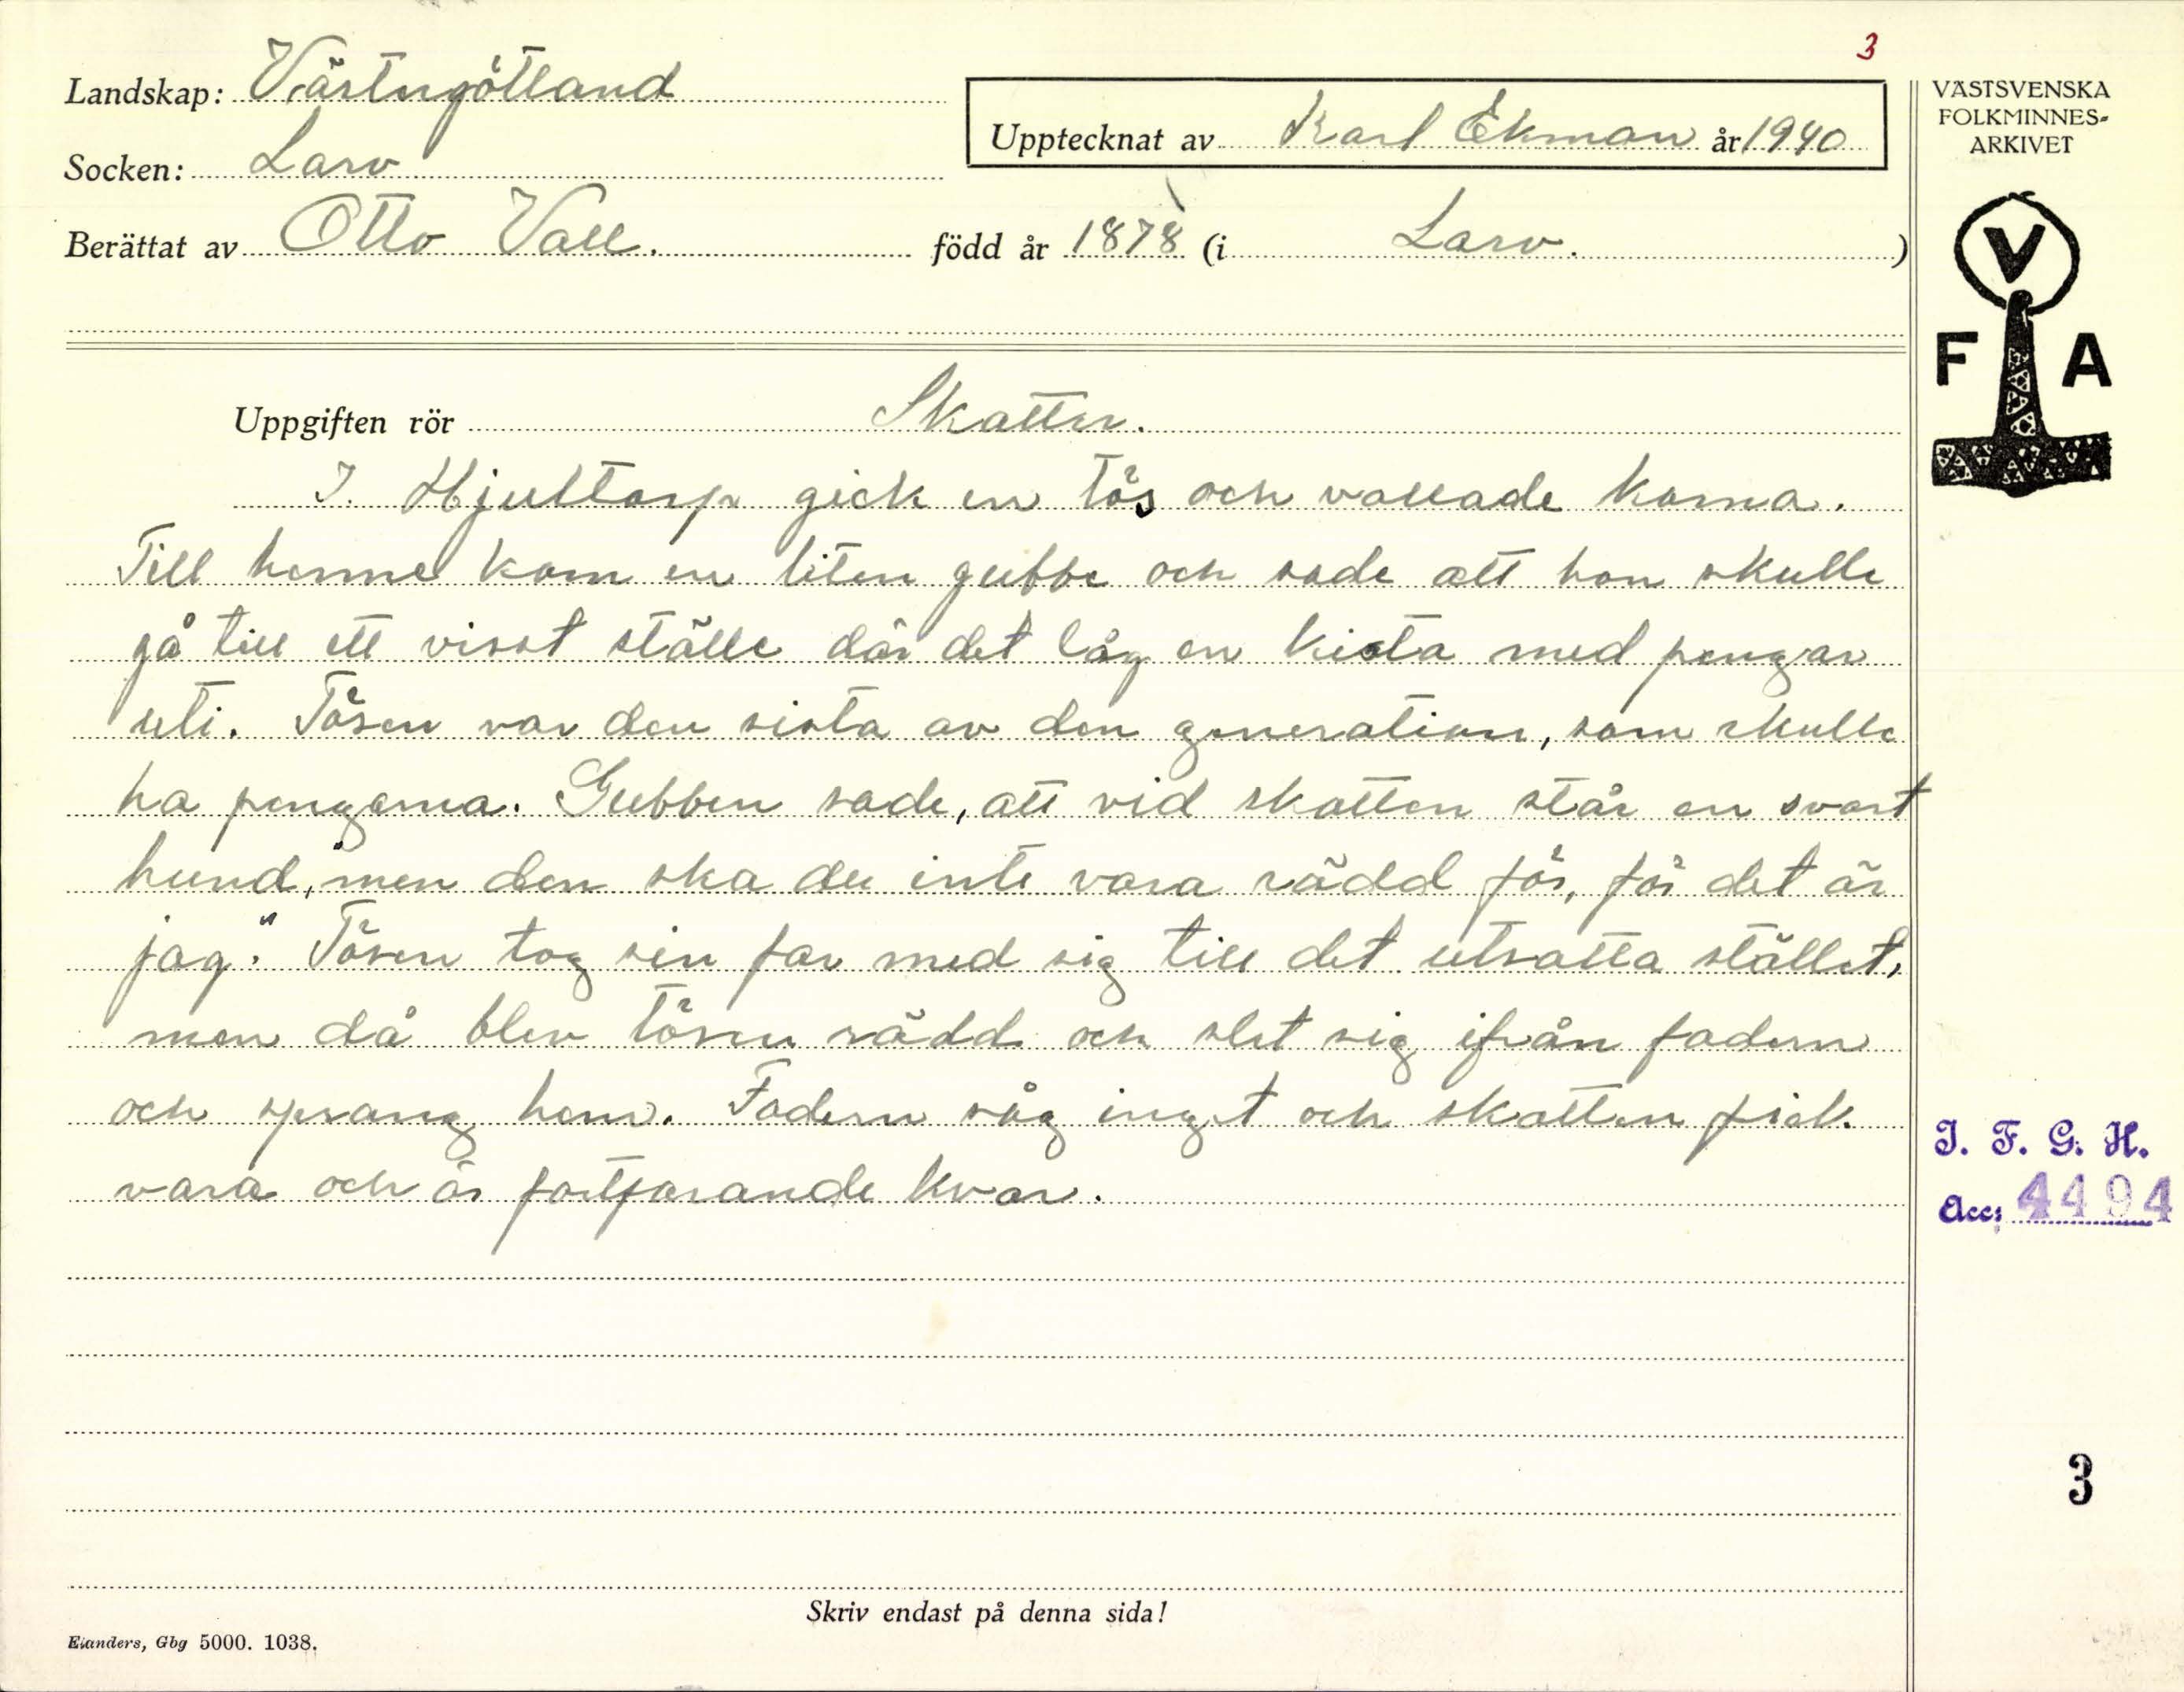 3
Landskap: Västergötland
Upptecknat av Karl Ekman år 1940
Socken: Larv
Berättat av Otto Vall. född år 1878 (i Larv. )
VÄSTSVENSKA
FOLKMINNES-
ARKIVET
V
F A
Uppgiften rör Skatter.
I. Hjultorp gick en tös och vallade korna.
Till henne kom en liten gubbe och sade att hon skulle
gå till ett visst ställe där det låg en kista med pengar
uti. Tösen var den sista av den generation, som skulle
ha pengarna. Gubben sade, att vid skatten står en svart
hund, "men den ska du inte vara rädd för, för det är
jag". Tösen tog sin far med sig till det utsatta stället,
men då blev tösen rädd och slet sig ifrån fadern
och sprang hem. Fadern såg inget och skatten fick
vara och är fortfarande kvar.
I. F. G. H.
Acc: 4494
3
Skriv endast på denna sida!
Elanders, Gbg 5000. 1038.